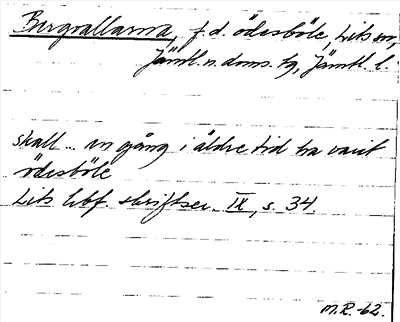 Bergvallarna, f.d. ödesböle, Lits sn,
Jämtl. n. doms. tg, Jämtl. l.
skall ... en gång i äldre tid ha varit
ödesböle
Lits hbf. skriftser. IX, s. 34.
M.R. -62.